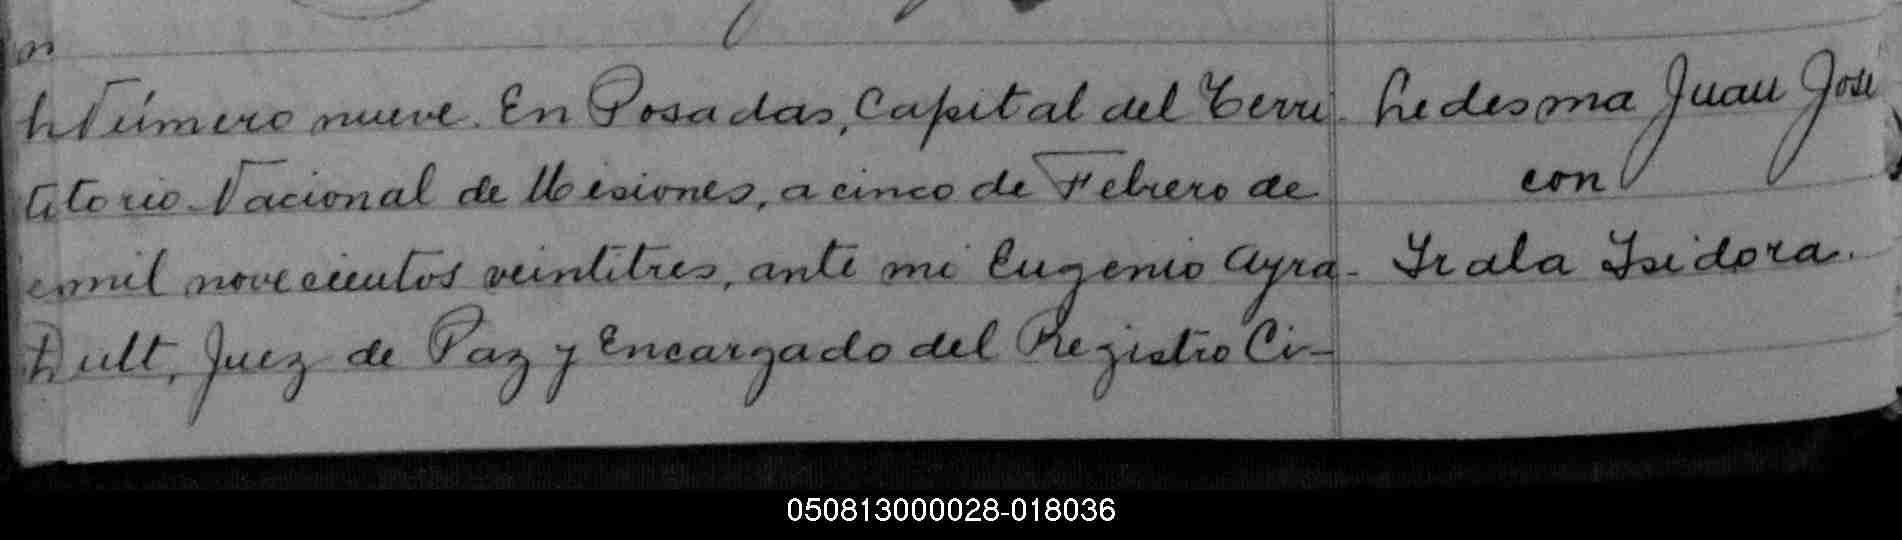 Número nueve. En Posadas, Capital del Terri-
torio Nacional de Misiones, a cinco de Febrero de
mil novecientos veintitres, ante mi Eugenio Ayra-
ult, Juez de Paz y Encargado del Registro Ci-
Ledesma Juan José
con
Irala Isidora.
050813000028-018036